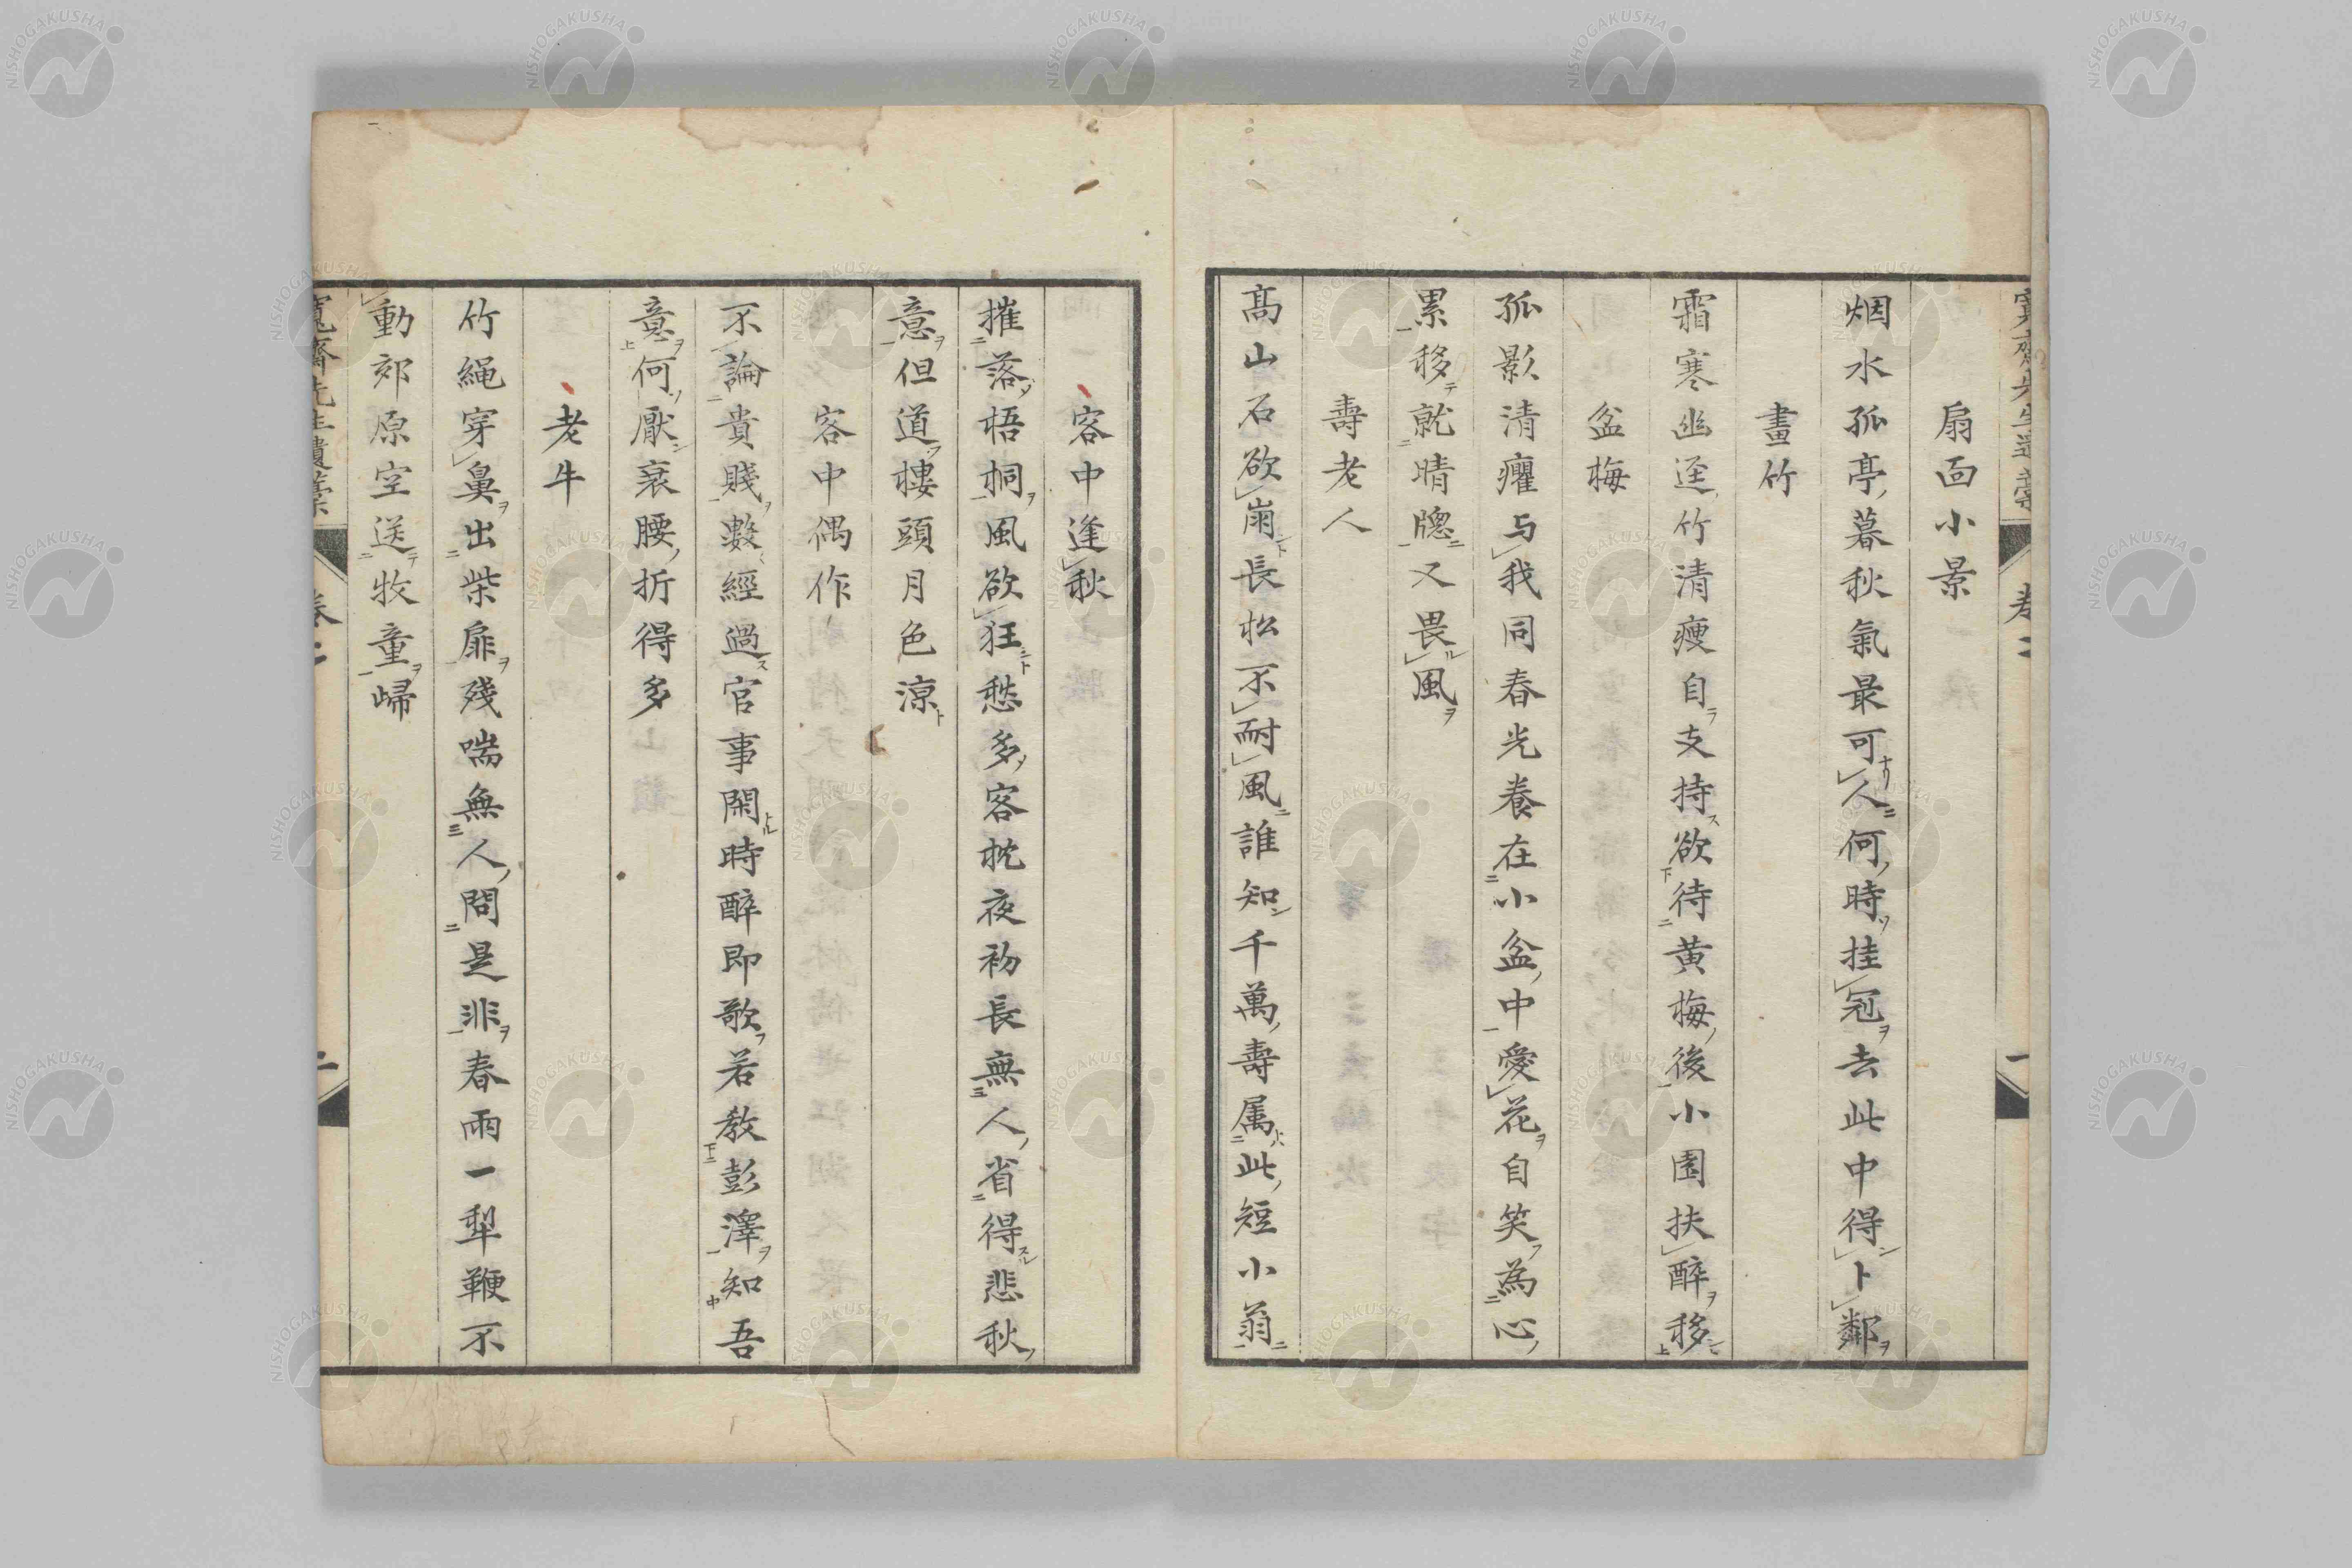 扇面小景
烟水孤亭暮秋氣最可人何時挂冠去此中得卜鄰
畫竹
霜寒幽逕竹清瘦自支持欲待黄梅後小園扶醉移
盆梅
孤影清癯与我同春光養在小盆中愛花自笑為心
累移就晴牕又畏風
壽老人
髙山石欲崩長松不耐風誰知千萬壽属此短小翁
客中逢秋
摧落梧桐風欲狂愁多客枕夜初長無人省得悲秋
意但道樓頭月色凉
客中偶作
不論貴賤數經過官事閑時醉即歌若教彭澤知吾
意何厭衰腰折得多
老牛
竹繩穿鼻出柴扉殘喘無人問是非春雨一犁鞭不
動郊原空送牧童歸
卷二
二
NISHOGAKUSHA